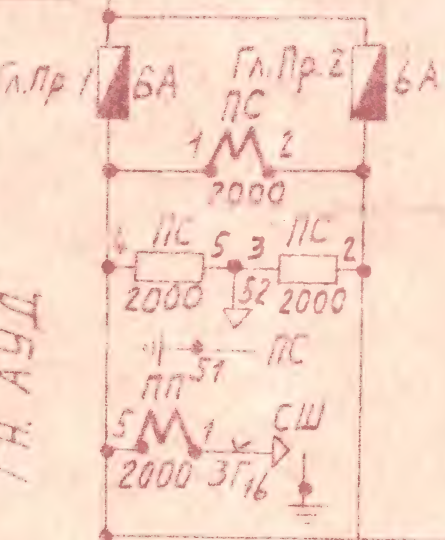 Гл.Пр 1 6А Гл.Пр.2 6А
ПС
1 2
2000
ПС 5 3 ПС 2
2000 52 2000
51 ПС
ПП СШ
5 1
2000 3Г16